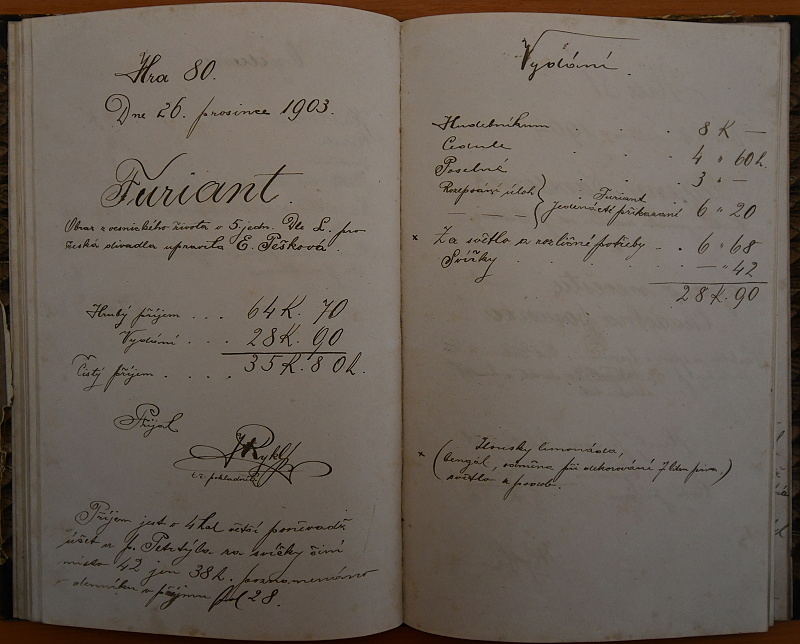 Hra 80.
Dne 26. prosince 1903.
Furiant.
Obraz z vesnického života v 5 jedn. Dle L. pro
česká divadla upravila E. Pešková.
Hrubý příjem ... 64 K. 70
Vydání ... 28 K. 90
Čistý příjem .... 35 K. 80 h.
Přijal
Rykl
t. č. pokladník
Příjem jest o 4 hal větší poněvadž
účet p. Petrtýla za svíčky činí
místo 42 jen 38 h. poznamenáno
v denníku v příjmu fol 28.
Vydání.
Hudebníkum . . . 8 K —
Cedule . . . 4 " 60 h.
Poselné . . . 3 " —
Rozepsání úloh } Furiant
— — — Jedenácté přikázání 6 " 20
x Za světlo a rozličné potřeby . . 6 " 68
Svíčky . . . — " 42
28 K. 90
x ( limonáda,
bengál, při dekorování 7 litrů piva.)
světlo a podob.